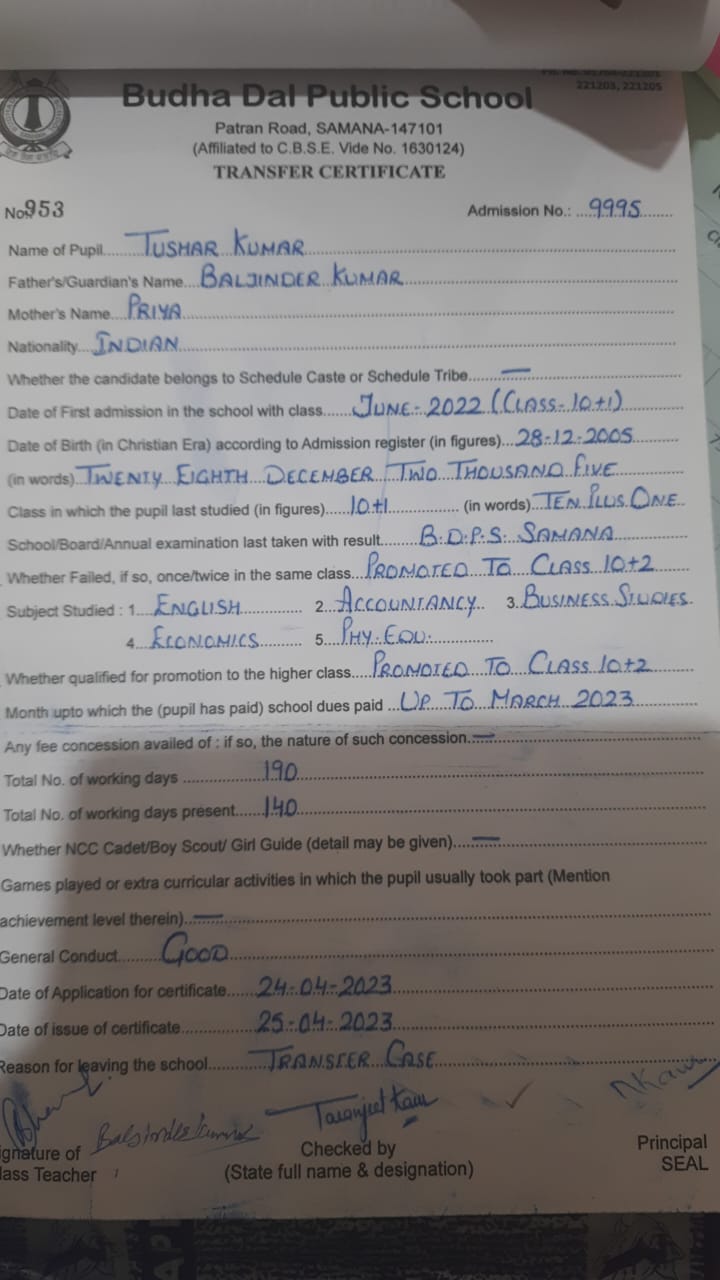 221203, 221205
Budha Dal Public School
Patran Road, SAMANA-147101
(Affiliated to C.B.S.E. Vide No. 1630124)
TRANSFER CERTIFICATE
No. 953 Admission No.: ...9995........
Name of Pupil....TUSHAR KUMAR....
Father's/Guardian's Name...BALJINDER KUMAR....
Mother's Name...PRIYA....
Nationality....INDIAN....
Whether the candidate belongs to Schedule Caste or Schedule Tribe....—....
Date of First admission in the school with class......JUNE-2022 (CLASS-10+1)
Date of Birth (in Christian Era) according to Admission register (in figures)...28-12-2005....
(in words)..TWENTY EIGHTH DECEMBER TWO THOUSAND FIVE....
Class in which the pupil last studied (in figures)......10+1.......... (in words)..TEN PLUS ONE..
School/Board/Annual examination last taken with result........B.D.P.S. SAMANA....
Whether Failed, if so, once/twice in the same class...PROMOTED TO CLASS 10+2....
Subject Studied : 1....ENGLISH........ 2....ACCOUNTANCY.. 3..BUSINESS STUDIES.
4....ECONOMICS........ 5....PHY. EDU.........
Whether qualified for promotion to the higher class....PROMOTED TO CLASS 10+2....
Month upto which the (pupil has paid) school dues paid ...UP TO MARCH 2023....
Any fee concession availed of : if so, the nature of such concession...—....
Total No. of working days ..........190....
Total No. of working days present......140....
Whether NCC Cadet/Boy Scout/ Girl Guide (detail may be given)....—....
Games played or extra curricular activities in which the pupil usually took part (Mention
achievement level therein)..—....
General Conduct........GOOD....
Date of Application for certificate......24-04-2023....
Date of issue of certificate..........25-04-2023....
Reason for leaving the school.........TRANSFER CASE....
Taranjeet Kaur NKaur
ignature of Checked by Principal
lass Teacher (State full name & designation) SEAL